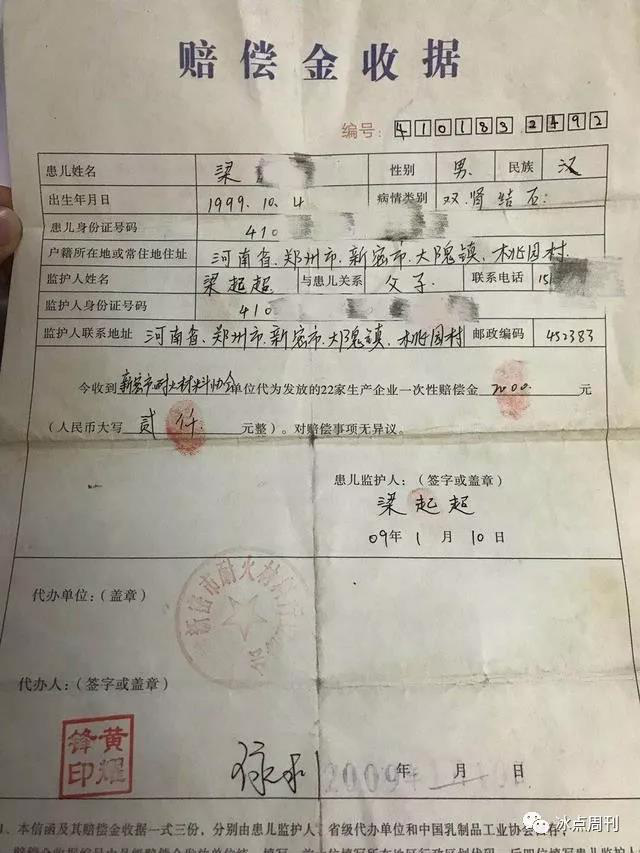 赔偿金收据
编号：410183 2492
患儿姓名 梁 性别 男 民族 汉
出生年月日 1999.10.4 病情类别 双肾结石
患儿身份证号码 410
户籍所在地或常住地住址 河南省、郑州市、新密市、大隗镇、桃园村
监护人姓名 梁起超 与患儿关系 父子 联系电话 15
监护人身份证号码 410
监护人联系地址 河南省、郑州市、新密市、大隗镇、桃园村 邮政编码 452383
今收到新密市耐火材料协会单位代为发放的22家生产企业一次性赔偿金 2000 元
（人民币大写 贰仟 元整）。对赔偿事项无异议。
患儿监护人：（签字或盖章）
梁起超
09年 1 月 10 日
代办单位：（盖章）
新密市耐火材料
代办人：（签字或盖章）
黄耀锋印
2009年 月 日
1、本信函及其赔偿金收据一式三份，分别由患儿监护人、省级代办单位和中国乳制品工业协会存
冰点周刊